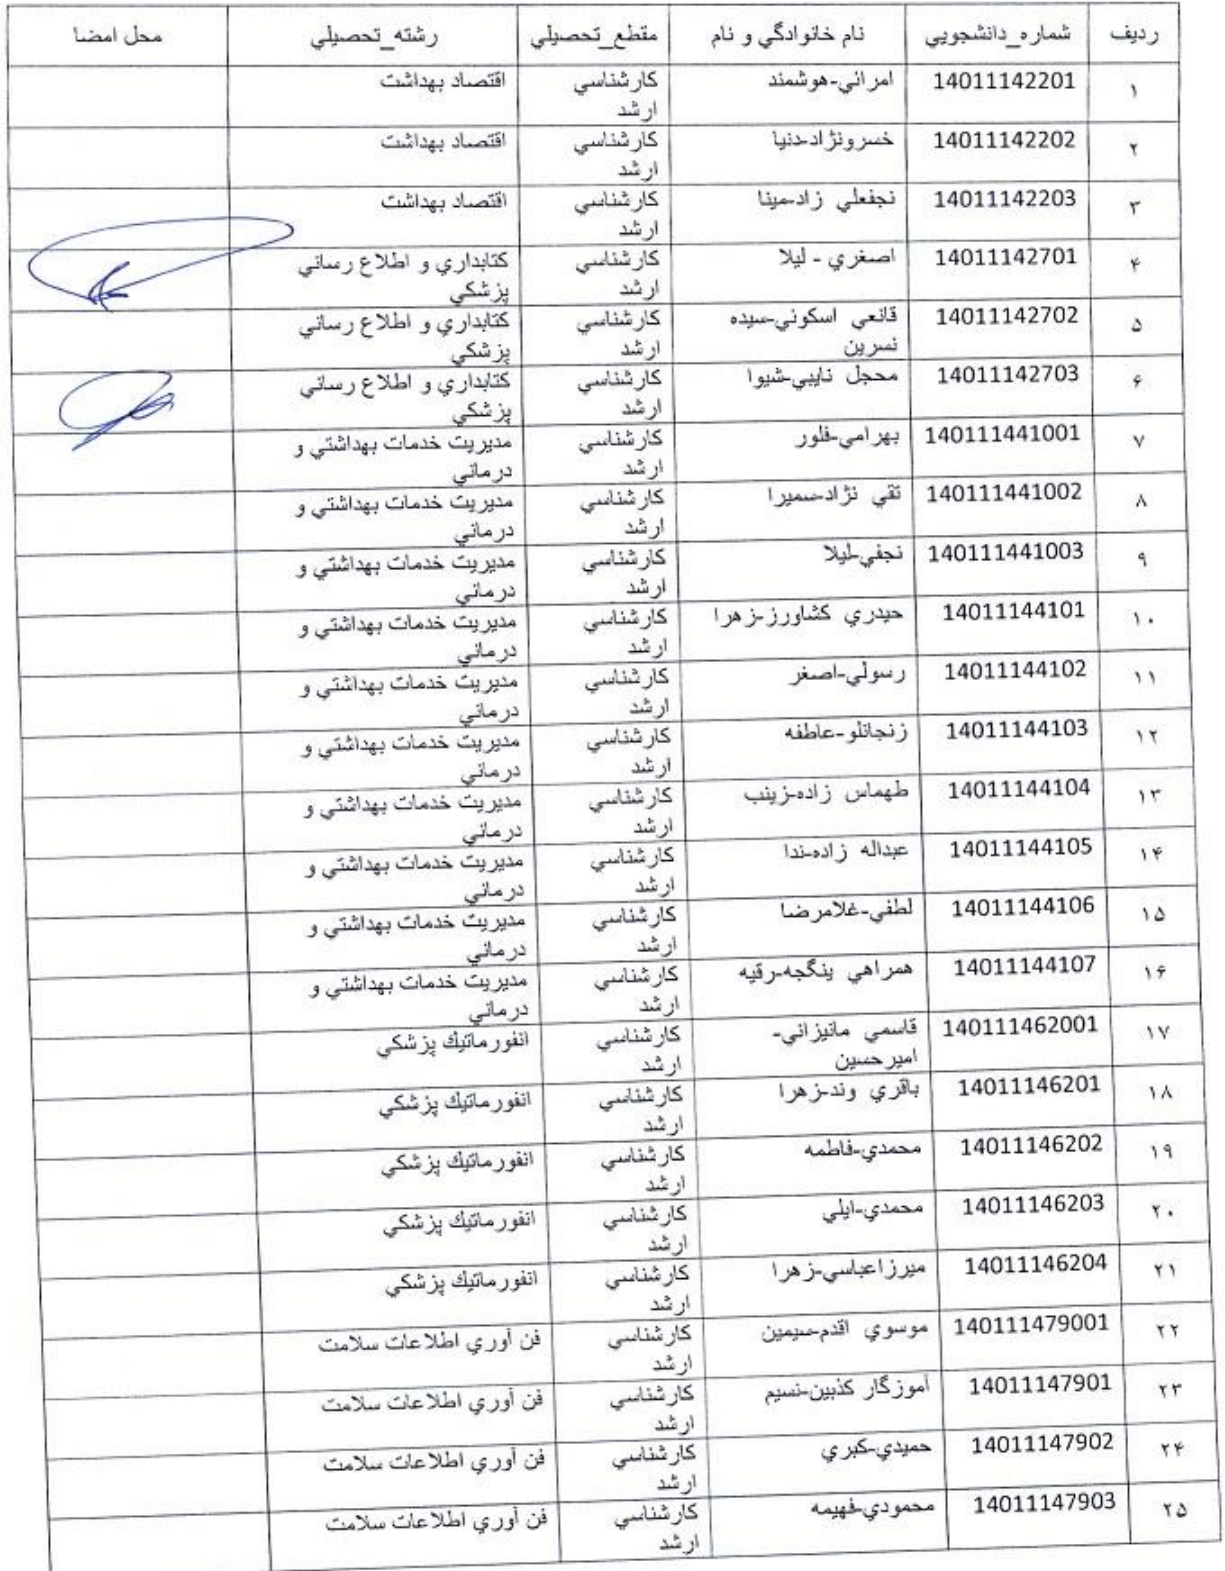 ردیف شماره_دانشجویی نام خانوادگي و نام مقطع_تحصيلي رشته_تحصيلي محل امضا
۱ 14011142201 امراني-هوشمند كارشناسي ارشد اقتصاد بهداشت
۲ 14011142202 خسرونژاد-دنيا كارشناسي ارشد اقتصاد بهداشت
۳ 14011142203 نجفعلي زاد-مينا كارشناسي ارشد اقتصاد بهداشت
۴ 14011142701 اصغري - ليلا كارشناسي ارشد كتابداري و اطلاع رساني پزشكي
۵ 14011142702 قانعي اسكوني-سيده نسرين كارشناسي ارشد كتابداري و اطلاع رساني پزشكي
۶ 14011142703 محجل نايبي-شيوا كارشناسي ارشد كتابداري و اطلاع رساني پزشكي
۷ 140111441001 بهرامي-فلور كارشناسي ارشد مديريت خدمات بهداشتي و درماني
۸ 140111441002 تقي نژاد-سميرا كارشناسي ارشد مديريت خدمات بهداشتي و درماني
۹ 140111441003 نجفي-ليلا كارشناسي ارشد مديريت خدمات بهداشتي و درماني
۱۰ 14011144101 حيدري كشاورز-زهرا كارشناسي ارشد مديريت خدمات بهداشتي و درماني
۱۱ 14011144102 رسولي-اصغر كارشناسي ارشد مديريت خدمات بهداشتي و درماني
۱۲ 14011144103 زنجانلو-عاطفه كارشناسي ارشد مديريت خدمات بهداشتي و درماني
۱۳ 14011144104 طهماس زاده-زينب كارشناسي ارشد مديريت خدمات بهداشتي و درماني
۱۴ 14011144105 عبداله زاده-ندا كارشناسي ارشد مديريت خدمات بهداشتي و درماني
۱۵ 14011144106 لطفي-غلامرضا كارشناسي ارشد مديريت خدمات بهداشتي و درماني
۱۶ 14011144107 همراهي ينگجه-رقيه كارشناسي ارشد مديريت خدمات بهداشتي و درماني
۱۷ 140111462001 قاسمي مانيزاني-اميرحسين كارشناسي ارشد انفورماتيك پزشكي
۱۸ 14011146201 باقري وند-زهرا كارشناسي ارشد انفورماتيك پزشكي
۱۹ 14011146202 محمدي-فاطمه كارشناسي ارشد انفورماتيك پزشكي
۲۰ 14011146203 محمدي-ايلي كارشناسي ارشد انفورماتيك پزشكي
۲۱ 14011146204 ميرزاعباسي-زهرا كارشناسي ارشد انفورماتيك پزشكي
۲۲ 140111479001 موسوي اقدم-سيمين كارشناسي ارشد فن آوري اطلاعات سلامت
۲۳ 14011147901 آموزگار كذبين-نسيم كارشناسي ارشد فن آوري اطلاعات سلامت
۲۴ 14011147902 حميدي-كبري كارشناسي ارشد فن آوري اطلاعات سلامت
۲۵ 14011147903 محمودي-فهيمه كارشناسي ارشد فن آوري اطلاعات سلامت